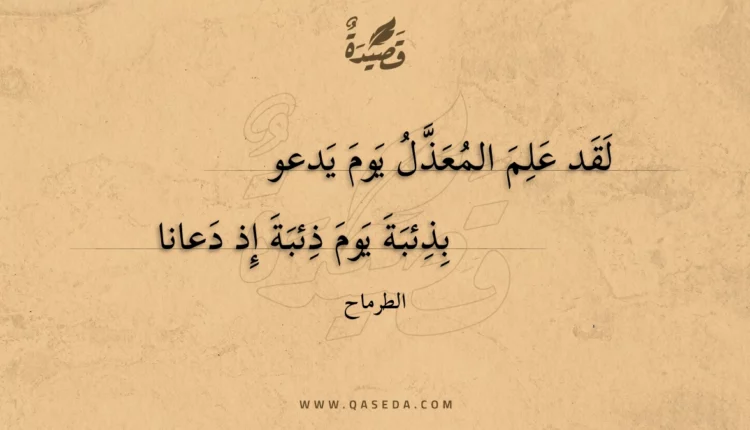 قَصِيدَةٌ
لَقَد عَلِمَ المُعَذَّلُ يَومَ يَدعو
بِذِئبَةَ يَومَ ذِئبَةَ إِذ دَعانا
الطرماح
WWW.QASEDA.COM